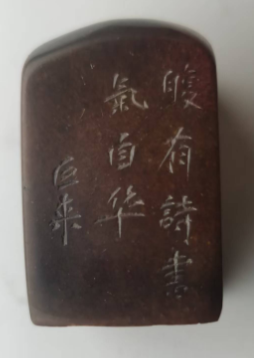 腹有詩書
氣自华
巨来